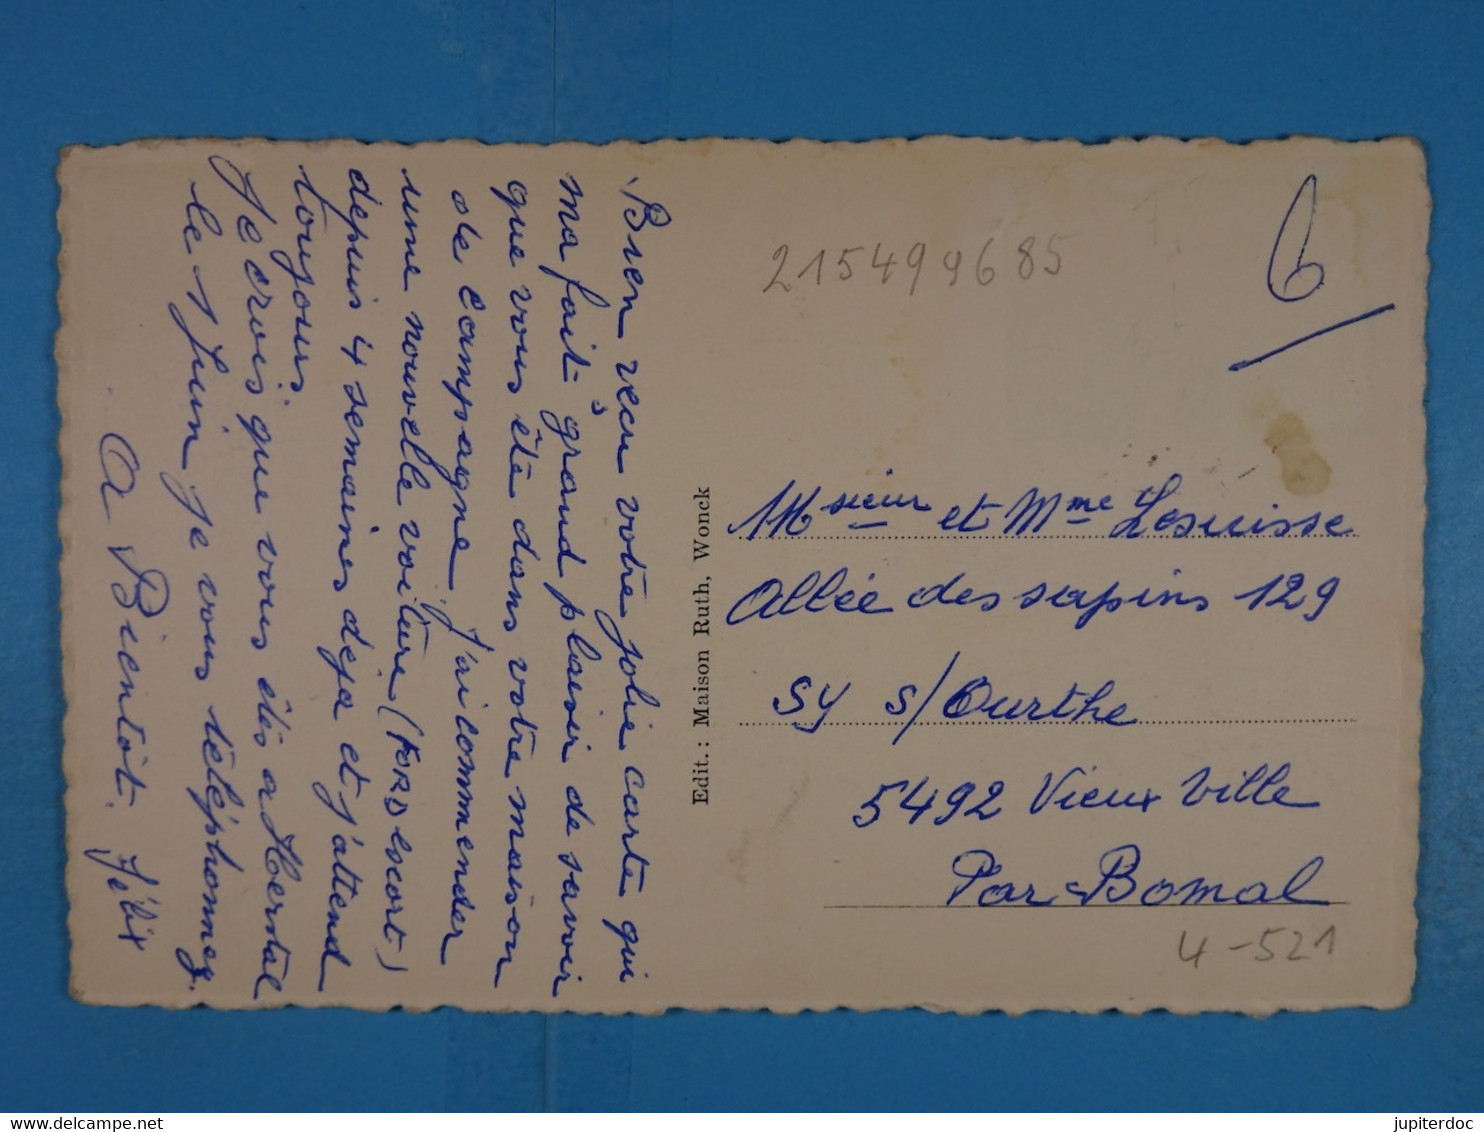 Bien reçu votre jolie carte qui
ma fait grand plaisir de savoir
que vous ête dans votre maison
de campagne. J'ai commender
une nouvelle voiture (FORD escort)
depuis 4 semaines deja et j'attend
toujours.
Je crois que vous êtes a Herstal
le 1 juin je vous téléphonneg.
A Bientôt.
Edit.: Maison Ruth, Wonck
215499685
6
Msieur et Mme Lesuisse
Allée des sapins 129
SY s/Ourthe
5492 Vieux Ville
Par-Bomal
4-521
delcampe.net
jupiterdoc